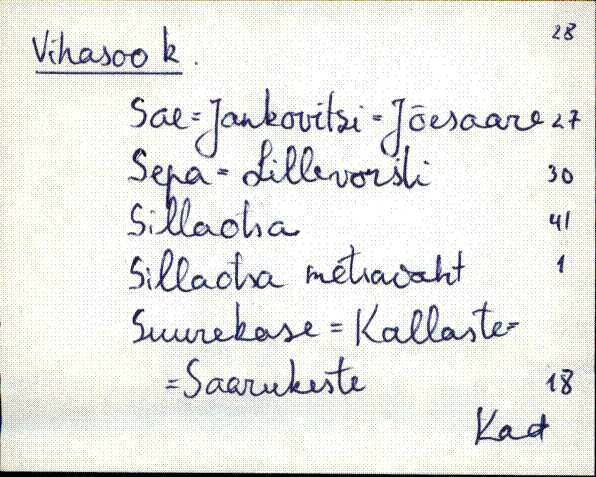 28
Vihasoo k.
Sae = Jankovitsi = Jõesaare 27
Sepa = Lillevorsti 30
Sillaotsa 41
Sillaotsa metsavaht 1
Suurekase = Kallaste =
= Saarukeste 18
Kad